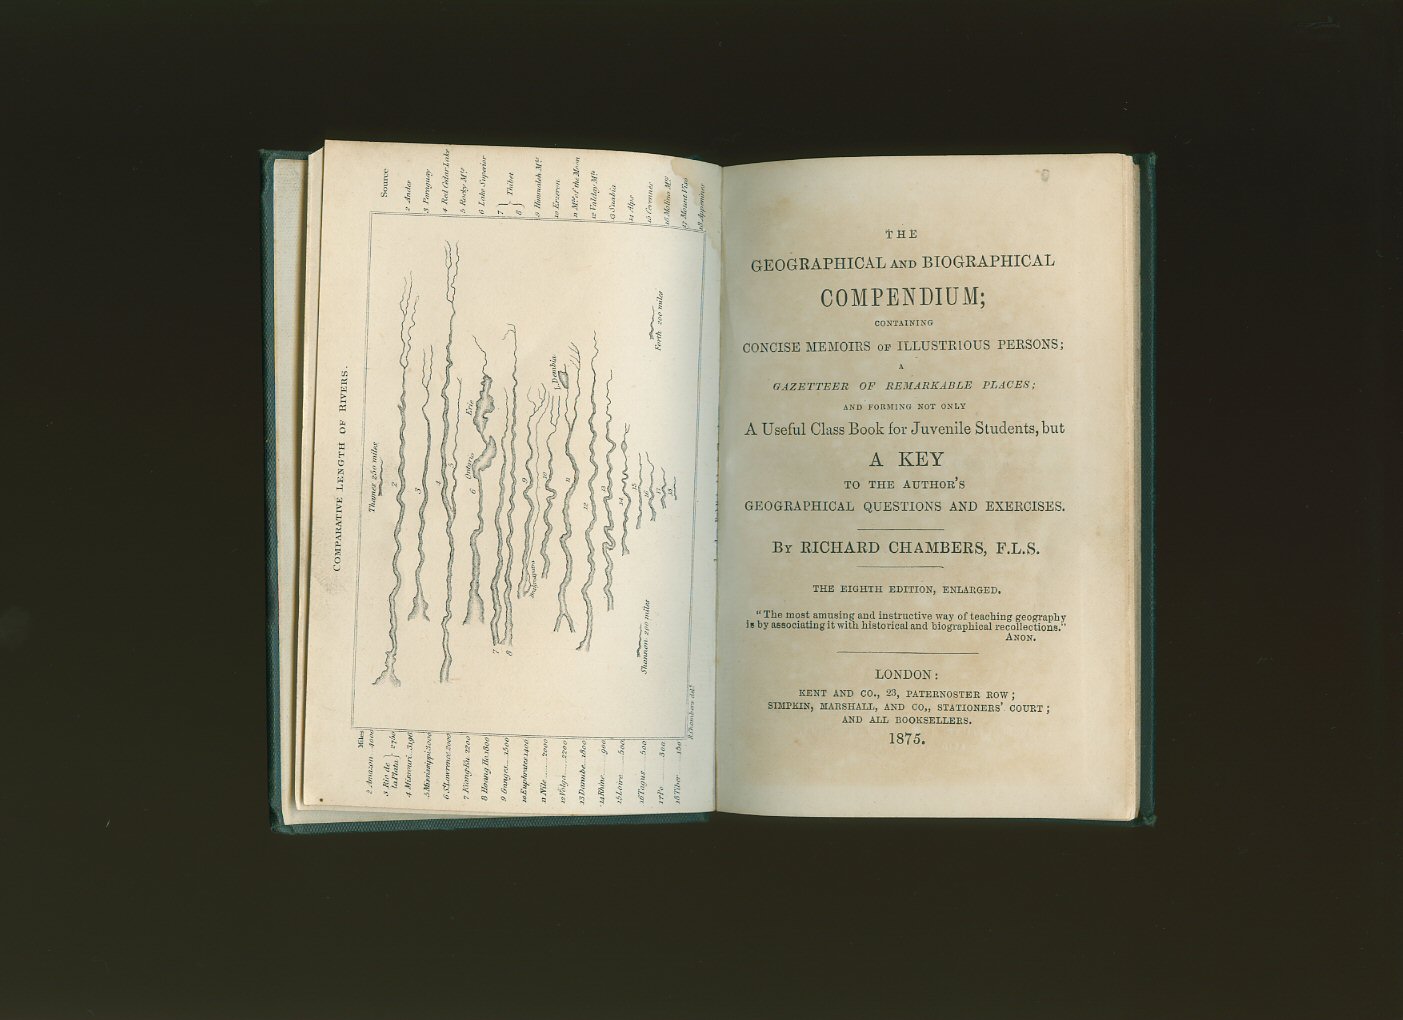 COMPARATIVE LENGTH OF RIVERS.
Source
2 Andes
3 Paraguay
4 Red Cedar Lake
5 Rocky Mts
6 Lake Superior
7 } Thibet
8
9 Himmaleh Mts
10 Erzeron
11 Mts of the Moon
12 Valday Mts
13 Suabia
14 Alps
15 Cevennes
16 Molina Mts
17 Mount Viso
18 Appenines
Thames 250 miles
Forth 200 miles
Shannon 210 miles
Erie
Ontario
L. Dembia
2
3
4
5
6
7
8
9
10
11
12
13
14
15
16
17
18
R. Chambers delt
Miles
2 Amazon 4000
3 Rio de la Plata } 2350
4 Missouri 3190
5 Mississippi 3000
6 St Lawrence 2000
7 Kiang Ku 2200
8 Hoang Ho 1800
9 Ganges 1500
10 Euphrates 1400
11 Nile 2000
12 Volga 2200
13 Danube 1800
14 Rhine 900
15 Loire 500
16 Tagus 500
17 Po 300
18 Tiber 150
THE
GEOGRAPHICAL AND BIOGRAPHICAL
COMPENDIUM;
CONTAINING
CONCISE MEMOIRS OF ILLUSTRIOUS PERSONS;
A
GAZETTEER OF REMARKABLE PLACES;
AND FORMING NOT ONLY
A Useful Class Book for Juvenile Students, but
A KEY
TO THE AUTHOR'S
GEOGRAPHICAL QUESTIONS AND EXERCISES.
By RICHARD CHAMBERS, F.L.S.
THE EIGHTH EDITION, ENLARGED.
"The most amusing and instructive way of teaching geography
is by associating it with historical and biographical recollections."
ANON.
LONDON:
KENT AND CO., 23, PATERNOSTER ROW;
SIMPKIN, MARSHALL, AND CO., STATIONERS' COURT;
AND ALL BOOKSELLERS.
1875.